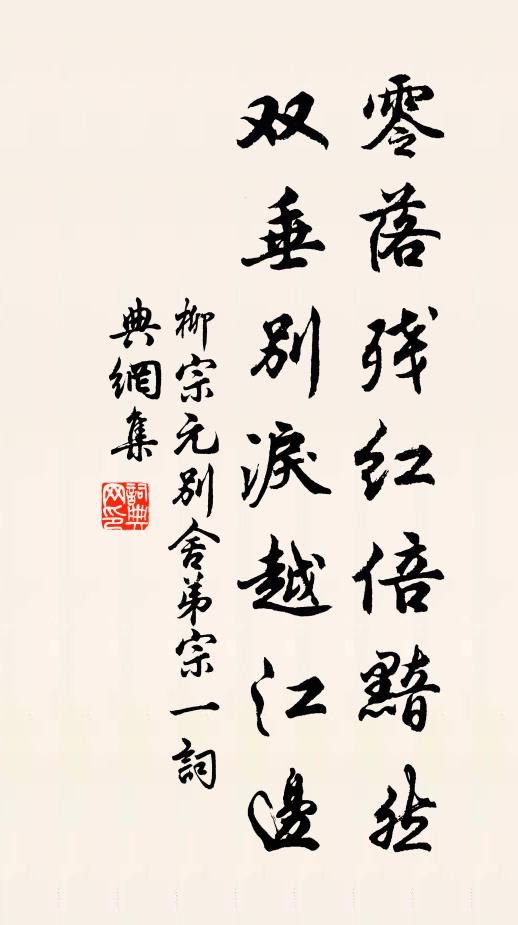 零落残红倍黯然
双垂别淚越江邊
柳宗元别舍弟宗一詞
典網集
詞典网印